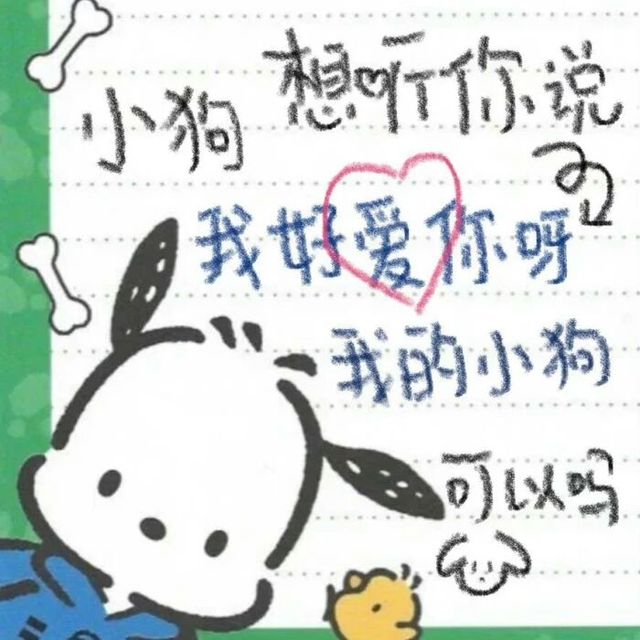 小狗 想听你说
我好爱你呀
我的小狗
可以吗